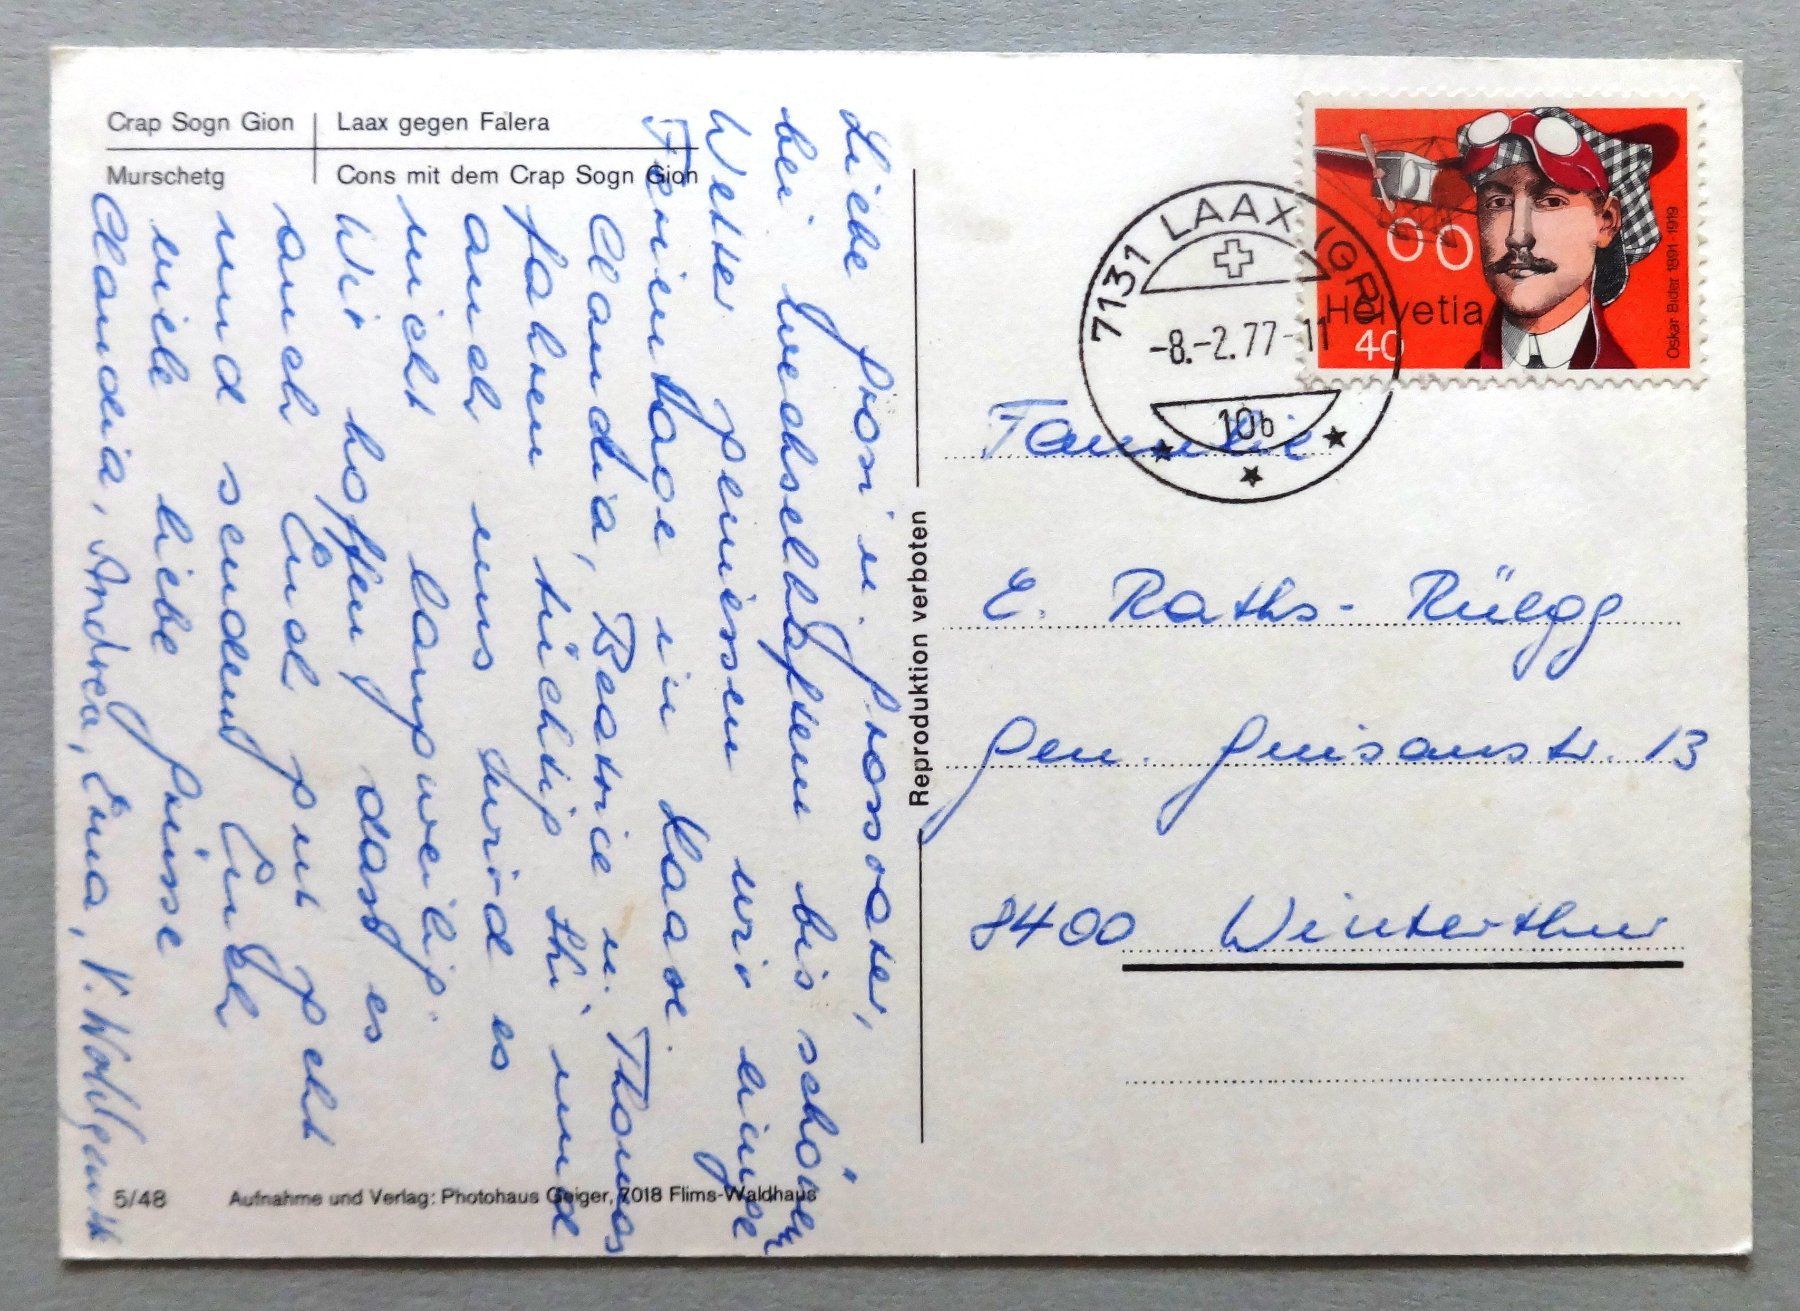 Crap Sogn Gion
Laax gegen Falera
Murschetg
Cons mit dem Crap Sogn Gion
Liebe Grosi u. Grossvater,
bei wechselhaftem bis schönem
Wetter geniessen wir einige
Ferientage in Laax.
Claudia, Beatrice u. Thomas
fahren tüchtig Ski und
auch uns wird es
nicht langweilig.
Wir hoffen dass es
auch Euch gut geht
und senden Euch
viele liebe Grüsse
Claudia, Andrea, Erna, V.
5/48
Aufnahme und Verlag: Photohaus Geiger, 7018 Flims-Waldhaus
Reproduktion verboten
7131 LAAX (GR)
-8.-2.77-11
10b
Helvetia
40
Oskar Bider 1891-1919
Familie
E. Raths-Rüegg
Gen. Guisanstr. 13
8400 Winterthur